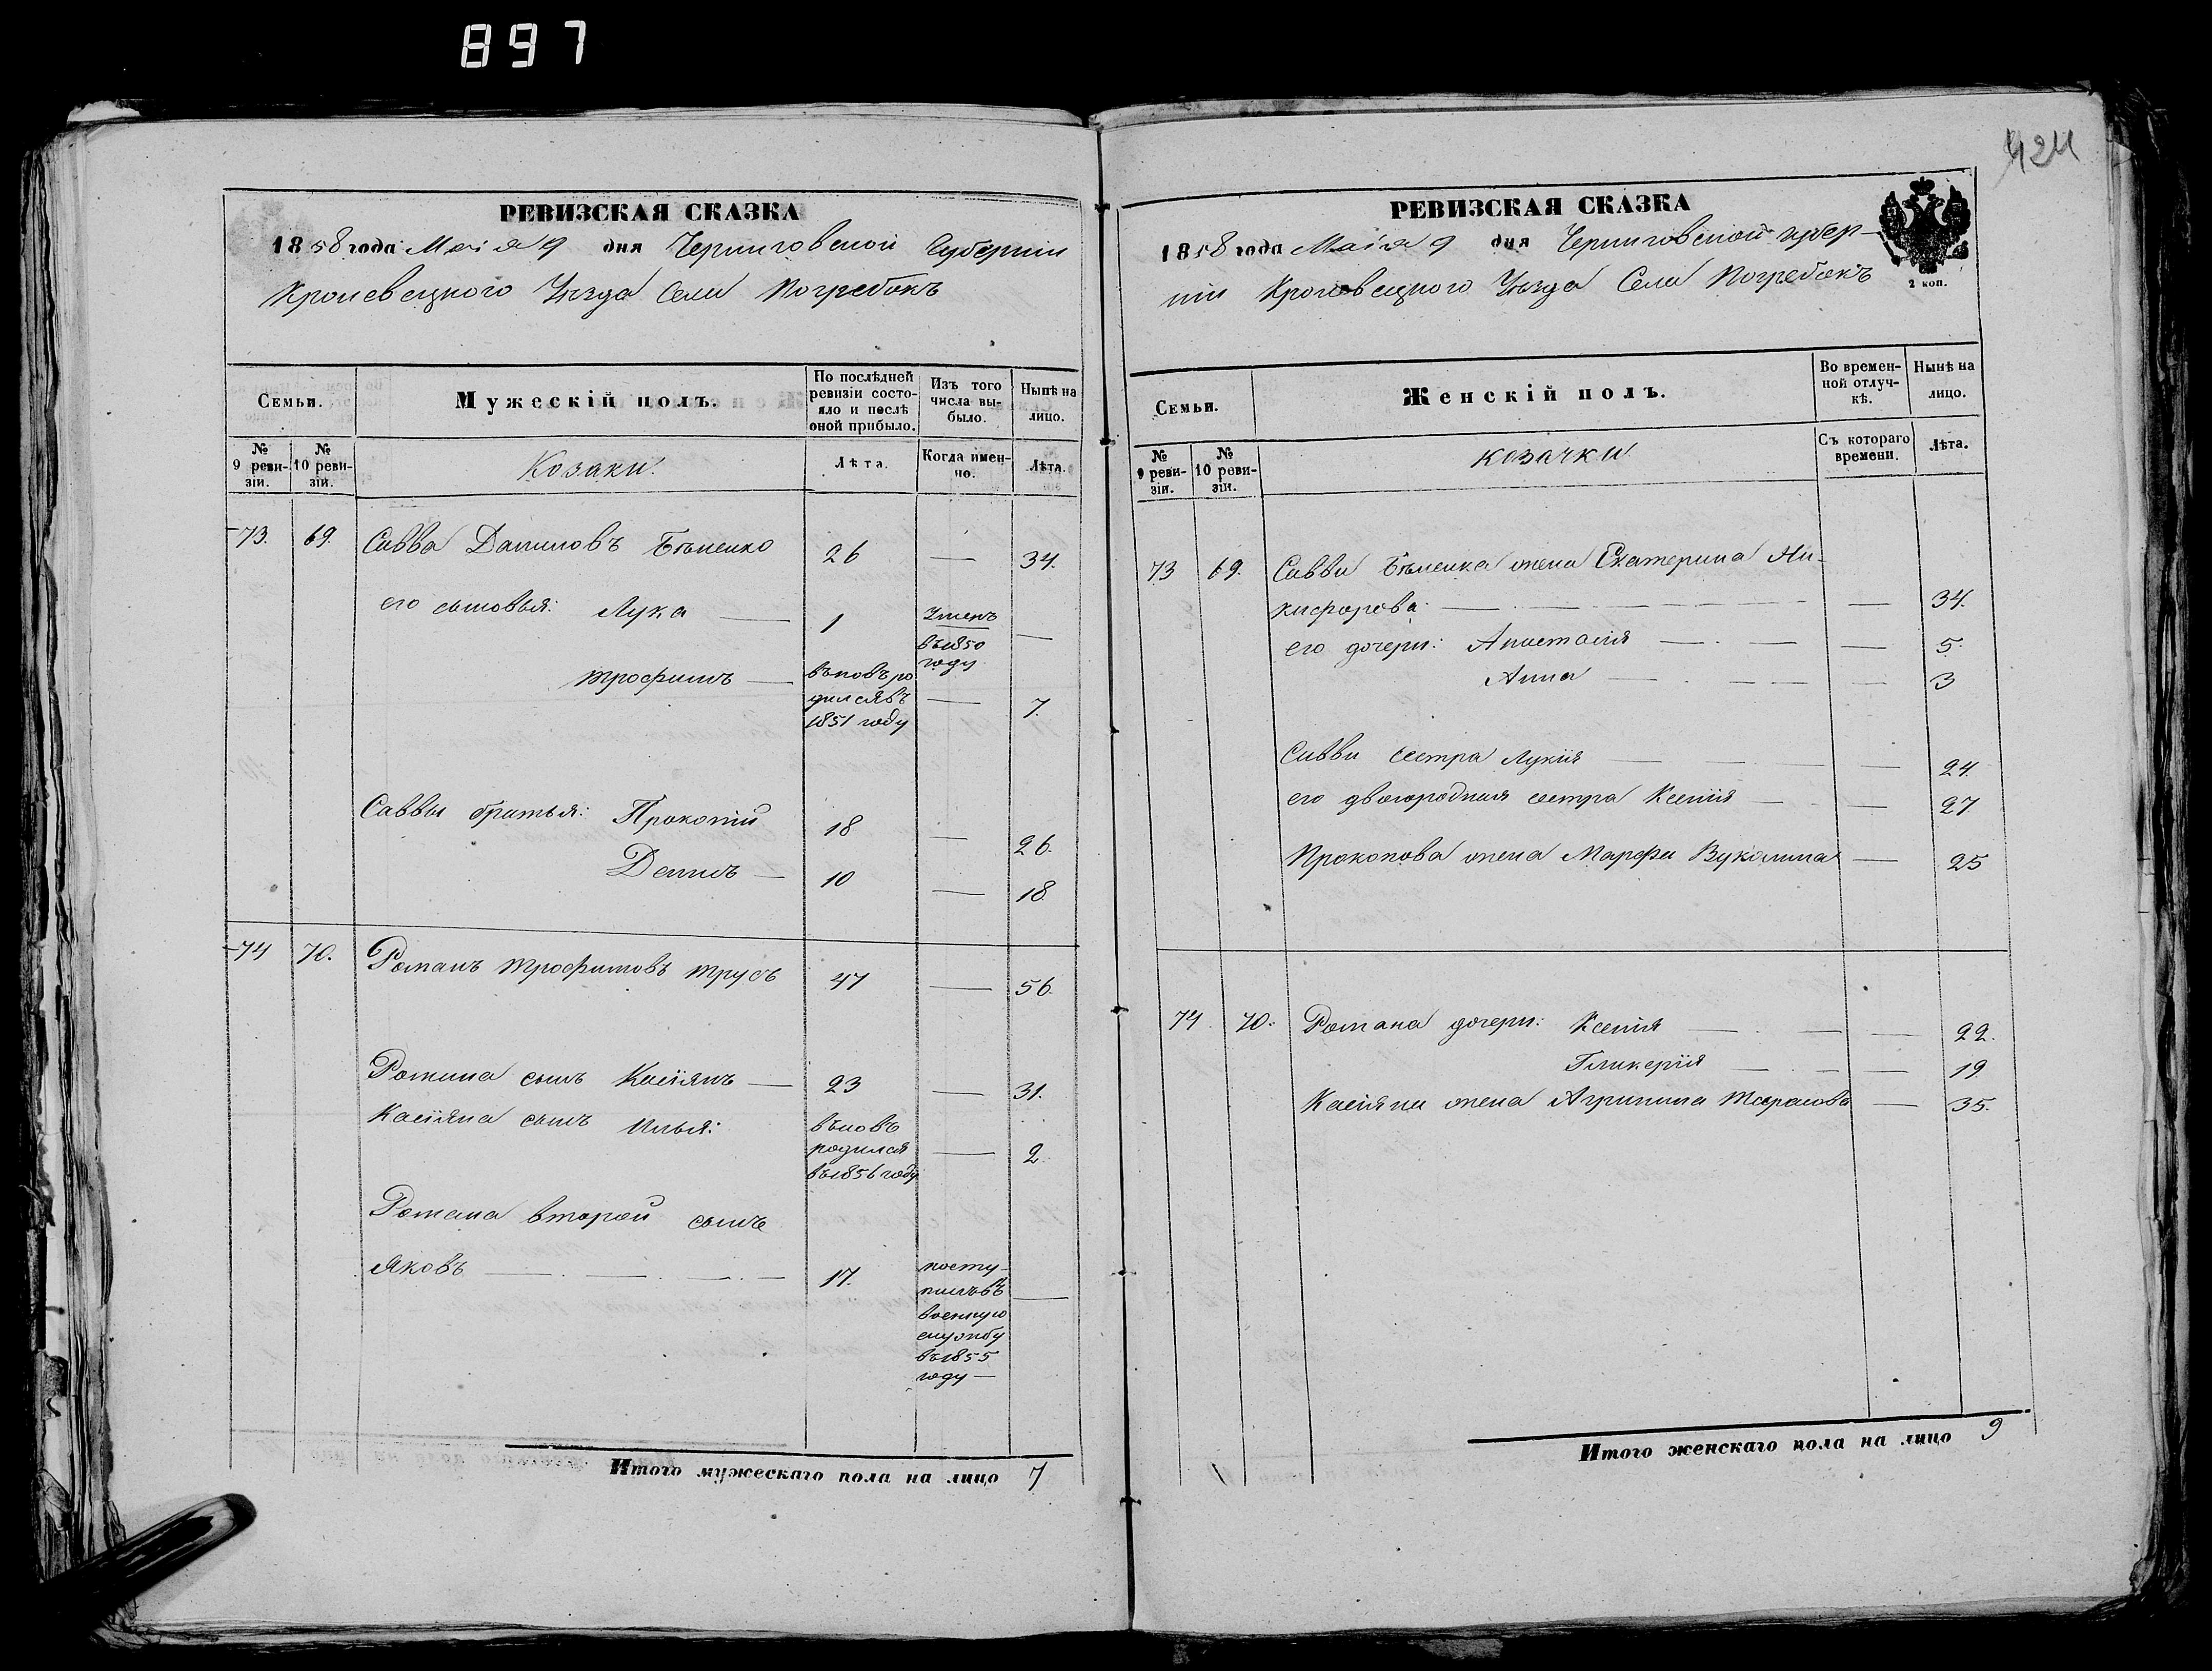 897
424
РЕВИЗСКАЯ СКАЗКА
1858 года Маія 9 дня Черниговской Губерніи
Кролевецкого Уѣзда Села Погребокъ
Семьи.
Мужескій полъ.
По послѣдней ревизіи состояло и послѣ оной прибыло.
Изъ того числа выбыло.
Нынѣ на лицо.
№ 9 ревизіи.
№ 10 ревизіи.
Козаки.
Лѣта.
Когда именно.
Лѣта.
73. 69. Савва Даниловъ Бѣленко 26 — 34.
его сыновья: Лука — 1 Умеръ въ 1850 году —
Трофимъ — вновь родился въ 1851 году — 7.
Саввы братья: Прокопій 18 — 26.
Демидъ — 10 — 18.
74 70. Романъ Трофимовъ Трусъ 47 — 56.
Романа сынъ Касіянъ — 23 — 31.
Касіяна сынъ Илья: вновь родился въ 1856 году — 2.
Романа второй сынъ
Яковъ — 17. поступилъ въ военную службу въ 1855 году —
Итого мужескаго пола на лицо 7
РЕВИЗСКАЯ СКАЗКА
1858 года Маія 9 дня Черниговской губер-
ніи Кролевецкого Уѣзда Села Погребокъ
2 коп.
Семьи.
Женскій полъ.
Во временной отлучкѣ.
Нынѣ на лицо.
№ 9 ревизіи.
№ 10 ревизіи.
козачки
Съ котораго времени.
Лѣта.
73 69. Саввы Бѣленка жена Екатерина Ни-
кифорова — — 34.
его дочери: Анастасія — — 5.
Анна — — 3
Саввы сестра Лукія — — 24.
его двоюродная сестра Ксенія — — 27
Прокопова жена Марфа Вуколина — 25
74. 70. Романа дочери: Ксенія — — 22.
Гликерія — — 19
Касіяна жена Агрипина Тарасова — 35.
Итого женскаго пола на лицо 9